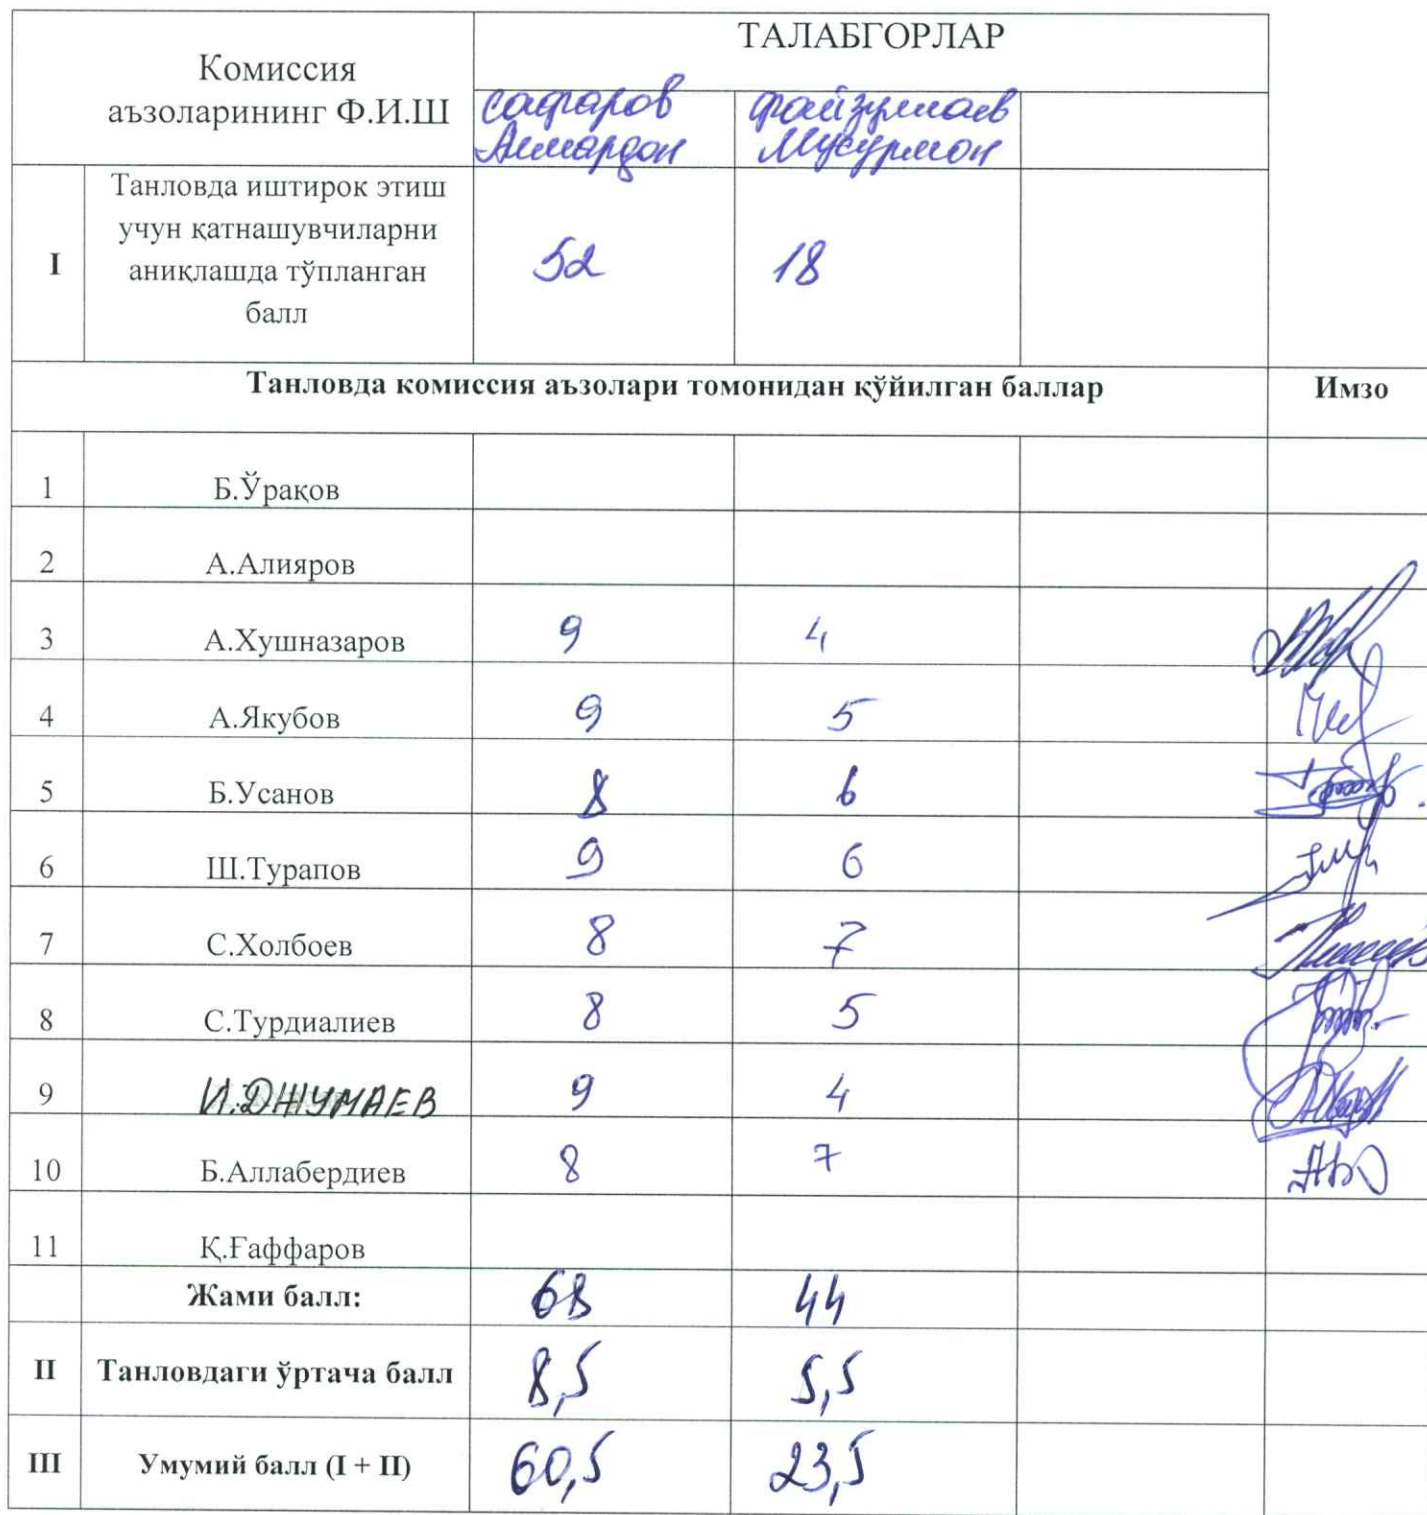 Комиссия
аъзоларининг Ф.И.Ш
ТАЛАБГОРЛАР
сафаров
Алмардон
файзуллаев
Мусурмон
I
Танловда иштирок этиш
учун қатнашувчиларни
аниқлашда тўпланган
балл
52
18
Танловда комиссия аъзолари томонидан қўйилган баллар
Имзо
1 Б.Ўрақов
2 А.Алияров
3 А.Хушназаров 9 4
4 А.Якубов 9 5
5 Б.Усанов 8 6
6 Ш.Турапов 9 6
7 С.Холбоев 8 7
8 С.Турдиалиев 8 5
9 И.ДЖУМАЕВ 9 4
10 Б.Аллабердиев 8 7
11 Қ.Ғаффаров
Жами балл: 68 44
II Танловдаги ўртача балл 8,5 5,5
III Умумий балл (I + II) 60,5 23,5